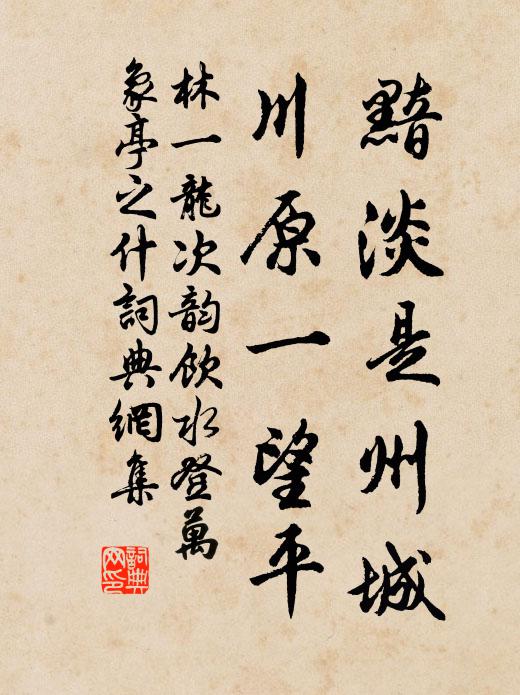 黯淡是州城
川原一望平
林一龍次韵飲水登萬
象亭之什詞典網集
詞典
网印